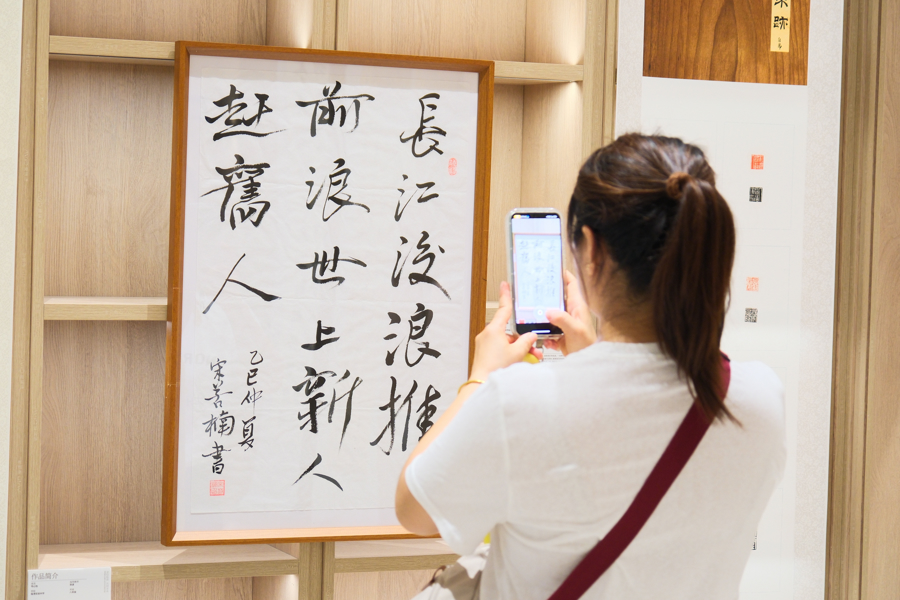 長江後浪推
前浪世上新人
赶舊人
乙巳仲夏
宋善楠書
跡
作品簡介